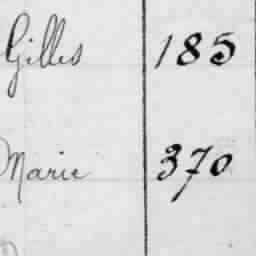 Gilles 185
Marie 370